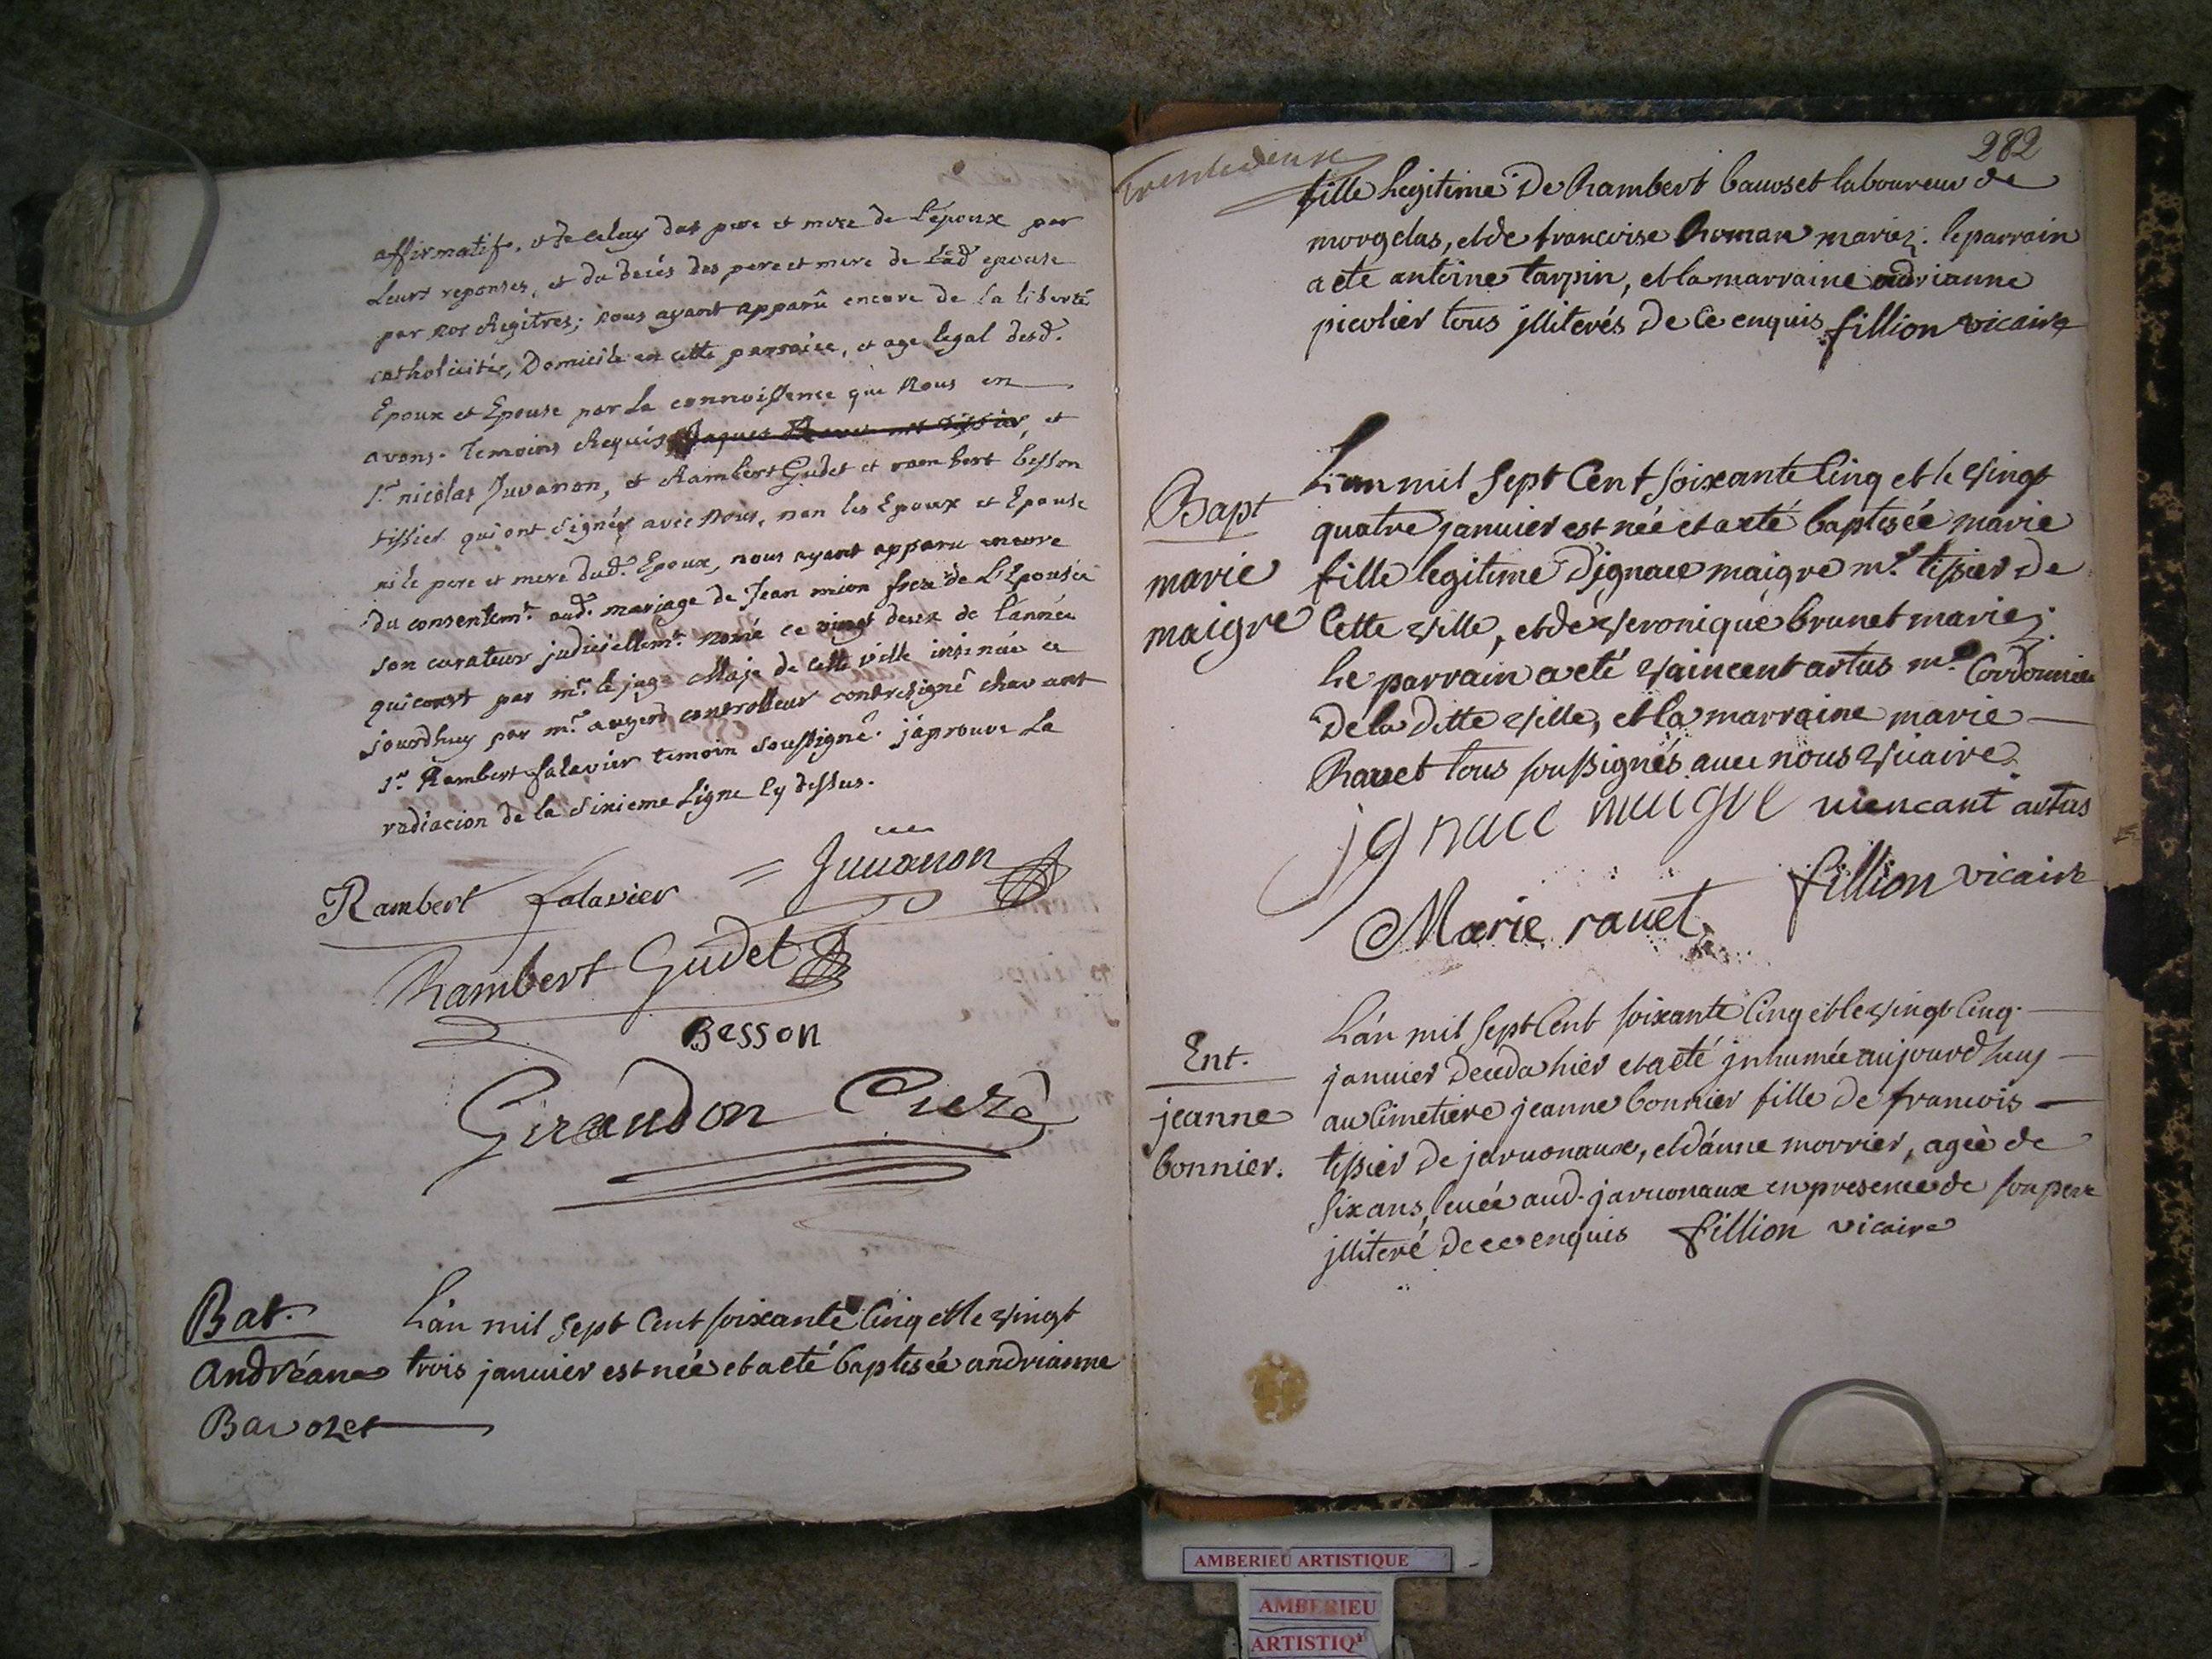 affirmatif, et de celuy des pere et mere de l'époux par
Leurs reponses, et du decés des pere et mere de lad epouse
par nos Regitres; nous ayant apparû encore de la liberté
catholicité, Domicile en cette parroice, et age legal desd.
Epoux et Epouse par la connoissence que nous en
avons. Temoins Requis Jaques et
Sr. nicolas Juvanon, et Rambert Gudet et rembert besson
tissier qui ont signés avec nous, non les Epoux et Epouse
ni le pere et mere dud. Epoux, nous ayant apparu encore
du consentemt. aud. mariage de Jean mion frere de L'Epousée
son curateur judiciellemt. nomé ce vingt deux de l'année
qui court par mr. le juge Maje de cette ville insinuée ce
jourdhuy par mr. augerd controlleur contresigné chavant
Sr. Rambert falavier temoin soussigné. j'aprouve la
radiacion de la sixieme Ligne cy dessus.
Rambert falavier = Juuanon
Rambert Gudet
Besson
Giraudon Curé
Bat.
Andréane
Bavozet
L'an mil sept Cent soixante Cinq et le vingt
trois januier est née et a eté baptisée andrianne
trentedeuxe
282
fille Legitime De Rambert bauoset laboureur de
morgelas, et de francoise Roman mariez. le parrain
a ete antoine tarpin, et la marraine adrianne
picolier tous jlliterés de Ce enquis fillion vicaire
Bapt
marie
maigre
L'an mil sept Cent soixante Cinq et le vingt
quatre januier est née et a eté baptisée marie
fille legitime D'ignace maigre me. tissier de
Cette ville, et de veronique brunet mariez.
Le parrain a eté vaincent artus me. Cordonnier
De la ditte ville, et la marraine marie
Rauet tous soussignés auec nous vicaire.
jgnace maigre uiencant artus
fillion vicaire
Marie rauet
Ent.
jeanne
bonnier.
L'an mil sept Cent soixante Cinq et le vingt Cinq
januier deceda hier et a eté jnhumée aujourdhuy
au Cimetiere jeanne bonnier fille de francois
tissier de jaruonaux, et d'anne morrier, agée de
six ans, leuée aud. jaruonaux en presence de son pere
jlliteré de ce enquis fillion vicaire
AMBERIEU ARTISTIQUE
AMBERIEU
ARTISTIQ